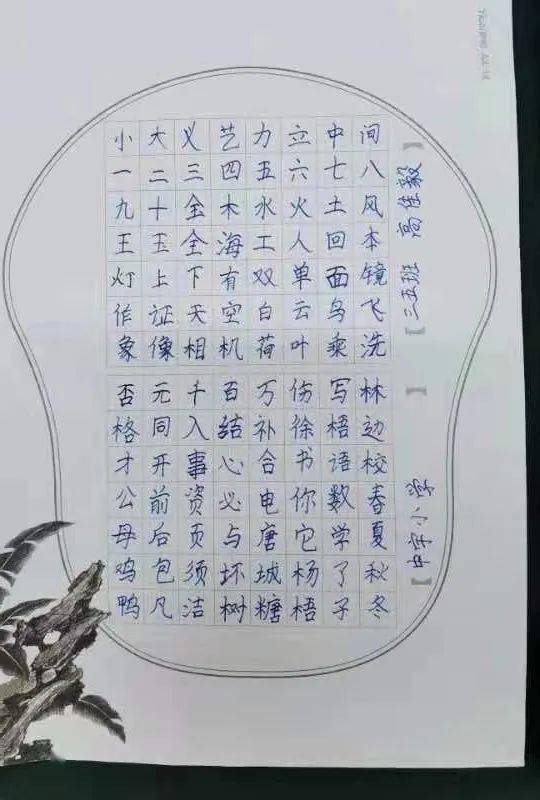 小大义艺力立中间
一二三四五六七八
九十金木水火土风
王玉全海工人回本
灯上下有双单面镜
作证天空白云鸟飞
象像相机荷叶乘洗
否元千百万伤写林
格同入结补徐梧边
才开事心合书语校
公前资必电你数春
母后页与唐它学夏
鸡包须坏城杨了秋
鸭凡洁树糖梧子冬
【中字小学】
【二五班 高佳毅】